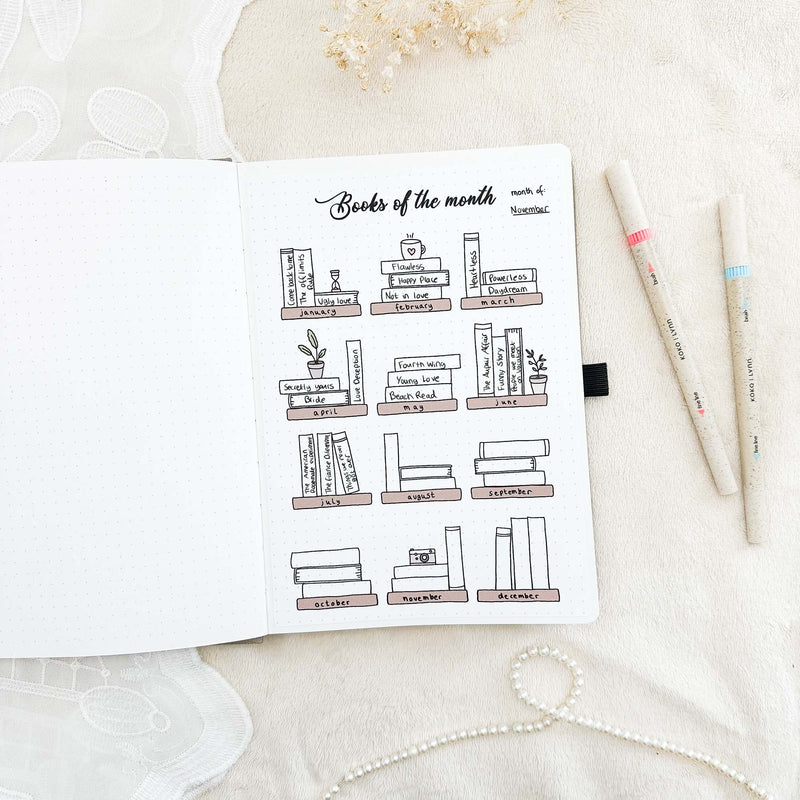 Books of the month
month of:
November
Come back to me
The off limits
Rule
Ugly love
january
Flawless
Happy Place
Not in love
february
Heartless
Powerless
Daydream
march
Secretly yours
Bride
Love Deception
april
Fourth Wing
Young Love
Beach Read
may
The Aupair Affair
Funny Story
People we meet
on Vacation
june
The American
Roommate experiment
The Fiance Dilemma
Things we never
got over
july
august
september
october
november
december
KOKO | LYNN
brush
fine line
KOKO | LYNN
brush
fine line